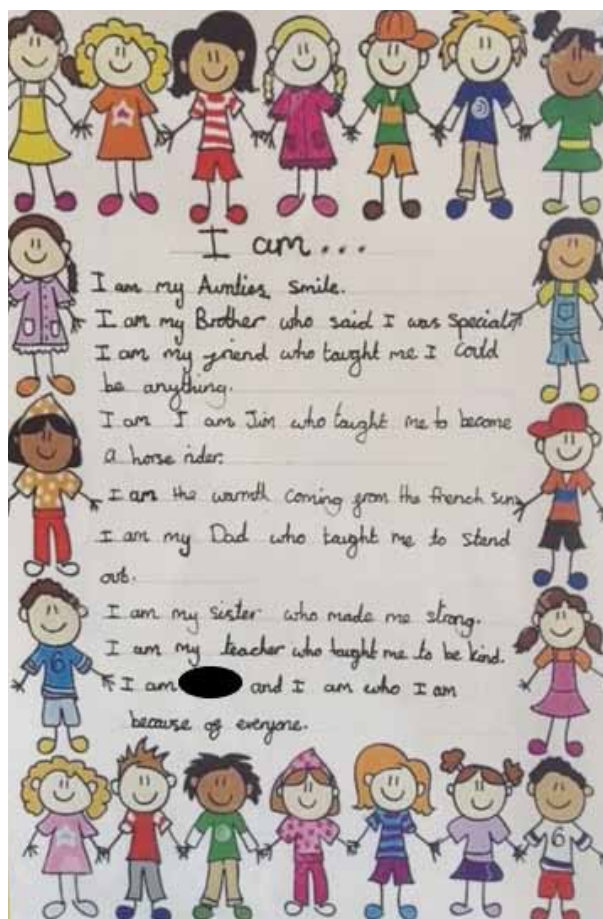 I am...
I am my Aunties smile.
I am my Brother who said I was special
I am my friend who taught me I could
be anything.
I am I am Jim who taught me to become
a horse rider.
I am the warmth coming from the french sun
I am my Dad who taught me to stand
out.
I am my sister who made me strong.
I am my teacher who taught me to be kind.
I am and I am who I am
because of everyone.
6
6